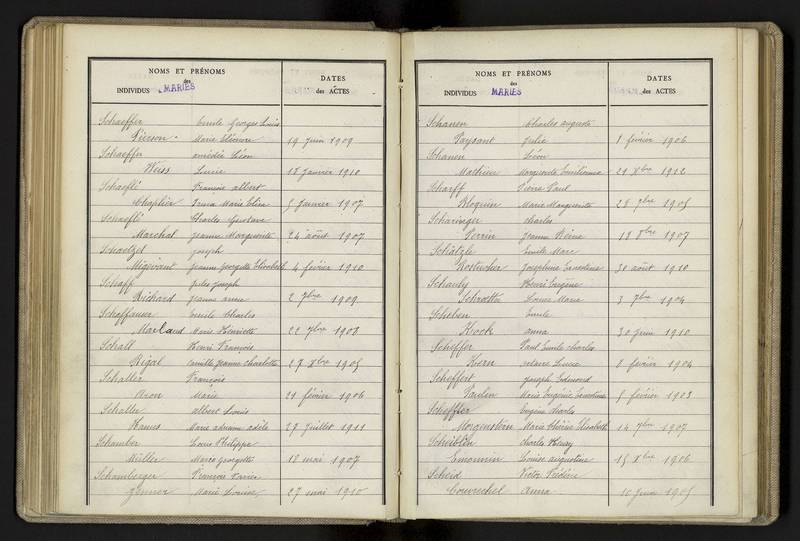 NOMS ET PRÉNOMS
des
INDIVIDUS MARIÉS
DATES
des ACTES
Schaeffer Emile Georges Louis
Pierson Marie Eléonore 19 Juin 1909
Schaeffer amédée Léon
Weiss Lucie 18 Janvier 1910
Schaeflé François albert
Chaplier Irma Marie 5 Janvier 1907
Schaeflé Charles Gustave
Marchal Jeanne Marguerite 24 août 1907
Schaetzel Joseph
Jeanne Georgette Elisabeth 4 février 1910
Schaff Jules Joseph
Richard Jeanne 2 7bre 1909
Schaffauser Emile Charles
Marie Henriette 22 7bre 1908
Schall Henri François
Rigal Camille Jeanne Charlotte 27 Xbre 1905
Schaller François
Aron Marie 21 février 1906
Schaller albert Louis
Marie adrienne adèle 27 Juillet 1911
Schamber Louis Philippe
Müller Marie Georgette 18 mai 1907
Schamberger François Xavier
Marie Louise 27 mai 1910
NOMS ET PRÉNOMS
des
INDIVIDUS MARIÉS
DATES
des ACTES
Schanen Charles auguste
Paysant Julie 1 février 1906
Schanen Léon
Mathieu Marguerite 21 Xbre 1912
Scharff Pierre Paul
Bloquin Marie Marguerite 28 9bre 1905
Scharinger Charles
Perrin Jeanne Reine 18 8bre 1907
Schätzle Emile Marc
Joséphine Ernestine 30 août 1910
Schauly Henri Eugène
Schrotter Louise Marie 3 7bre 1904
Scheben Emile
Kock anna 30 Juin 1910
Scheffer Paul Emile Charles
Kern Lucie 8 février 1904
Scheffert Joseph Edmond
Paulin Marie Eugénie Ernestine 5 février 1903
Scheffler Eugène Charles
Morgenstern Marie Thérèse Elisabeth 14 7bre 1907
Scheiblin Charles Henry
Emonnin Louise augustine 15 Xbre 1906
Scheid Victor Frédéric
Couvrechel Anna 10 Juin 1905